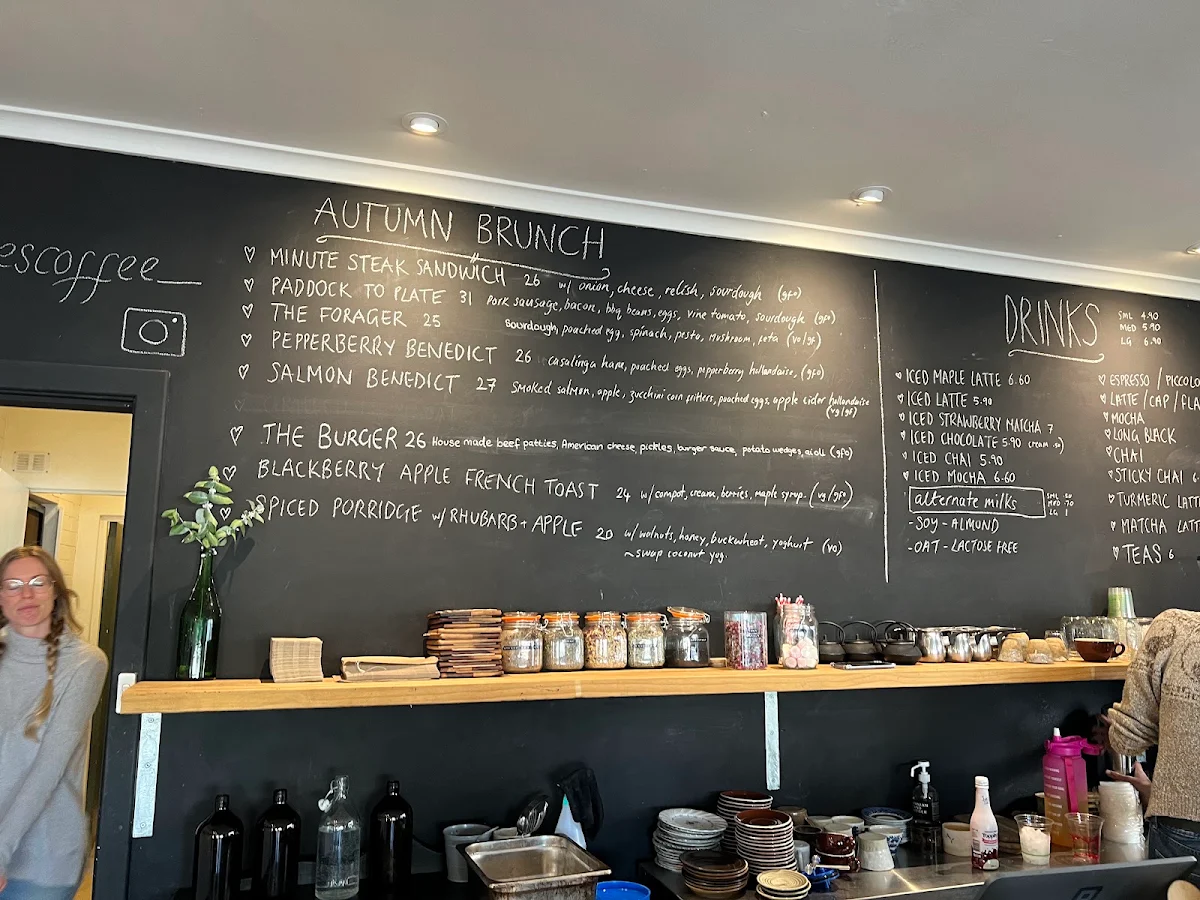 escoffee
AUTUMN BRUNCH
MINUTE STEAK SANDWICH 26 w/ onion, cheese, relish, sourdough (gfo)
PADDOCK TO PLATE 31 Pork sausage, bacon, bbq beans, eggs, vine tomato, sourdough (gfo)
THE FORAGER 25 Sourdough, poached egg, spinach, pesto, mushroom, feta (vo/gf)
PEPPERBERRY BENEDICT 26 casalinga ham, poached eggs, pepperberry hollandaise, (gfo)
SALMON BENEDICT 27 Smoked salmon, apple, zucchini corn fritters, poached eggs, apple cider hollandaise
(vg/gf)
THE BURGER 26 House made beef patties, American cheese, pickles, burger sauce, potato wedges, aioli (gfo)
BLACKBERRY APPLE FRENCH TOAST 24 w/ compot, cream, berries, maple syrup. (vg/gfo)
SPICED PORRIDGE w/ RHUBARB + APPLE 20 w/ walnuts, honey, buckwheat, yoghurt (vo)
~swap coconut yog.
DRINKS
SML 4.90
MED 5.90
LG 6.90
ICED MAPLE LATTE 6.60
ICED LATTE 5.90
ICED STRAWBERRY MATCHA 7
ICED CHOCOLATE 5.90 cream .50
ICED CHAI 5.90
ICED MOCHA 6.60
alternate milks
SML .50
MED .70
LG 1
-SOY -ALMOND
-OAT -LACTOSE FREE
ESPRESSO / PICCOLO
LATTE / CAP / FLA
MOCHA
LONG BLACK
CHAI
STICKY CHAI
TURMERIC LATT
MATCHA LATT
TEAS 6